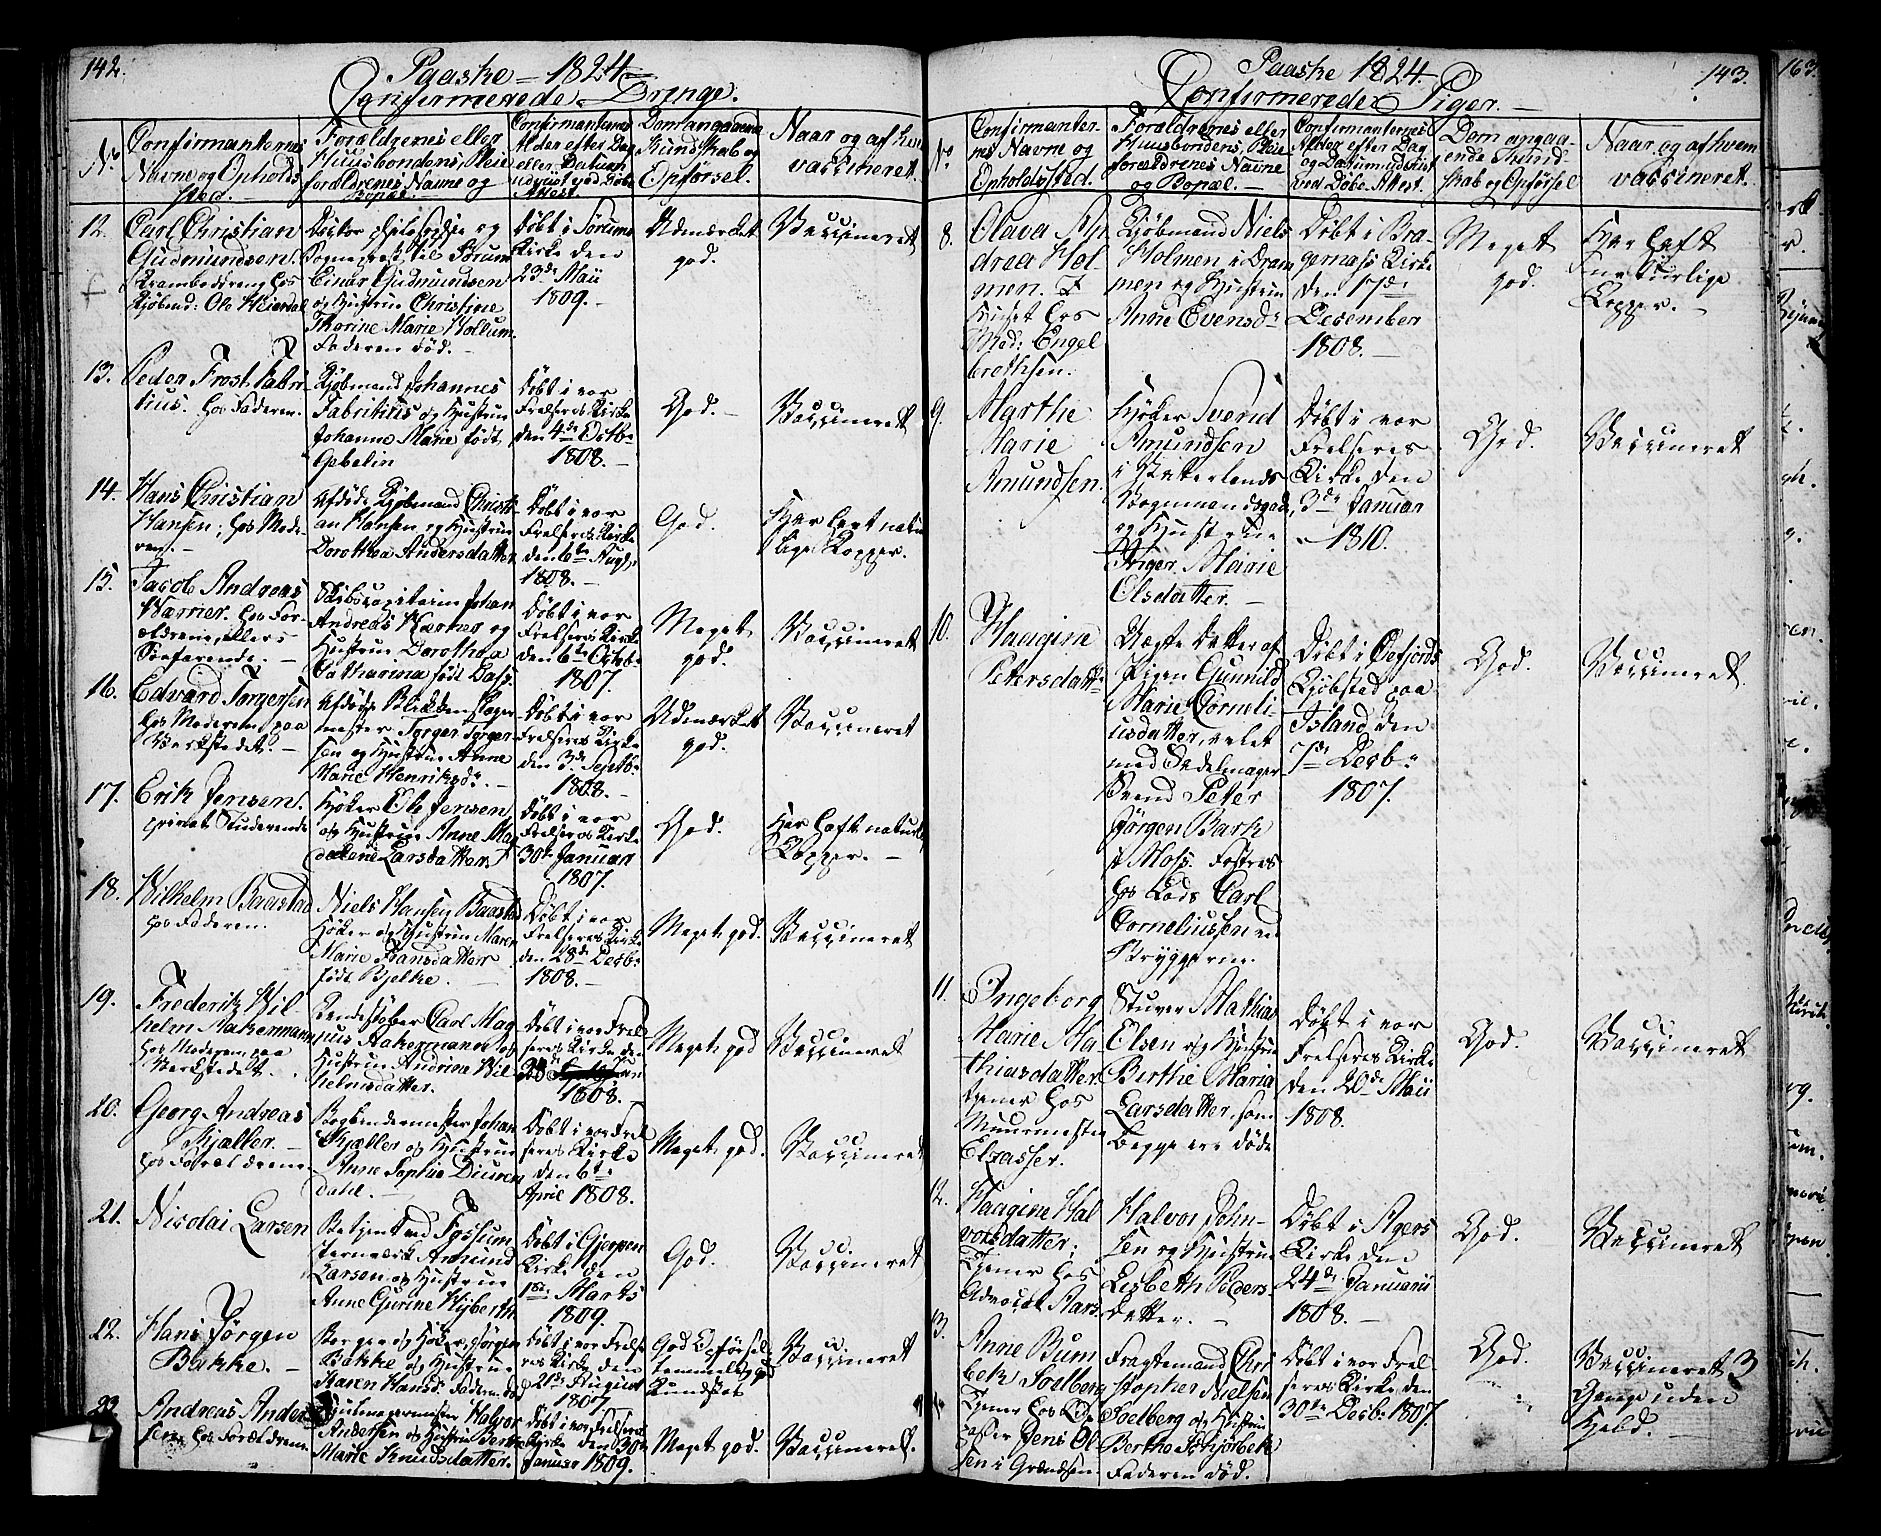 142.
Paaske - 1824 -
Confirmerede Drenge.
No
Confirmanternes
Navne og Opholds
sted.
Forældrenes eller
Huusbondens, Pleie
forældrenes Navne og
Bopæl.
Confirmanternes
Alder efter Dag
eller Datum
udviist ved Døbe
Attest.
Dom angaaende
Kundskab og
Opførsel.
Naar og af hvem
vaccineret.
12.
Carl Christian
Gudmundsen.
Krambodedreng hos
Kjøbmd: Ole Heierdal
Doctor philosophie og
Sogneprest til Sørum
Einar Gudmundsen
og Hustrue Christine
Thorine Marie Hollum.
Faderen død. -
Døbt i Sørums
Kirke den
23de Maii
1809. -
Udmærket
god.
Vaccineret
13.
Peder Frost Fabri-
tius. hos Faderen.
Kjøbmand Johannes
Fabritius og Hustrue
Johanne Marie født
Gebelin
Døbt i vor
Frelseres Kirke
den 4de Octbr
1808. -
God. -
Vaccineret
14.
Hans Christian
Hansen; hos Mode-
ren. -
Afdøde Kjøbmand Christi-
an Hansen og Hustrue
Dorothea Andersdatter
Døbt i vor
Frelseres Kirke
den 6te Augs:
1808. -
God.
Har havt natur
lige Kopper.
15.
Jacob Andreas
Warner. hos For-
ældrene, ellers
Søefarende. -
Skibscapitain Johan
Andreas Warner og
Hustrue Dorothea
Catharina født Bass.
Døbt i vor
Frelseres Kirke
den 6te Octobr
1807.
Meget
god.
Vaccineret
16.
Edvard Torgersen
hos Moderen paa
Værkstedet. -
Afdøde Blikkenslager
mester Torger Torger-
sen og Hustrue Anne
Marie Henriksdr. -
Døbt i vor
Frelseres Kirke
den 3de Septbr
1808. -
Udmærket
god.
Vaccineret
17.
Erik Jensen.
privat Studerende
Høker Ole Jensen
og Hustrue Anne Mag
dalene Larsdatter.
Døbt i vor
Frelseres Kirke
30te Januar
1807.
God.
Har havt naturl
Kopper. -
18.
Wilhelm Baastad
hos Faderen.
Niels Hansen Baastad
Høker og Hustrue Maren
Marie Fransdatter
født Bjelke. -
Døbt i vor
Frelseres Kirke
den 28de Decbr
1808. -
Meget god.
Vaccineret
19.
Frederik Wil-
helm Aakermann
hos Moderen paa
Værkstedet.
Carl Mag
nus Aakermann og
Hustrue Andrine Wil-
helmsdatter.
Døbt i vor Frel
seres Kirke den
1808. -
Meget god
Vaccineret
20.
Georg Andreas
Kjæller. -
hos Forældrene
Bogbindermester Johan
Kjæller og Hustrue
Anne Sophie Diuren
dahl. -
Døbt i vor Frel
seres Kirke
den 6te
April 1808.
Meget god.
Vaccineret
21.
Nicolai Larsen
Betjent ved Fossum
Jernværk Amund
Larsen og Hustrue
Anne Gurine Nyberth
Døbt i Gjerpen
Kirke den
1ste Marts
1809.
God.
Vaccineret
22.
Hans Jørgen
Bakke. -
Borger og Høker Jørgen
Bakke og Hustrue
Karen Hansd. Faderen død
Døbt i vor Frelse
res Kirke den
21de August
1807.
God Opførsel
temmelig god
Kundskab
Vaccineret
23
Andreas Ander
sen hos Forældrene
Halvor
Andersen og Hustrue Berthe
Marie Knudsdatter.
Døbt i vor Frelseres
Kirke den 30te
Januar 1809.
Meget god.
Vaccineret.
Paaske 1824.
143.
Confirmerede Piger. -
No
Confirmanter-
nes Navne og
Opholdssted.
Forældrenes eller
Huusbondens, Pleie
forældrenes Navne
og Bopæl. -
Confirmanternes
Alder efter Dag
og Datum udviist
ved Døbe Attest.
Dom angaa-
ende Kund-
skab og Opførsel
Naar og af hvem
vaccineret.
8.
Olava An
drea Hol-
men.
Huset hos
Mad: Engel
brethsen.
Kjøbmand Niels
Holmen i Dram
men og Hustrue
Anne Evensdr
Døbt i Bra-
gernæss Kirke
den 17de
December
1808. -
Meget
god.
Har haft
naturlige
Kopper. -
9.
Marthe
Marie
Amundsen.
Høker Svend
Amundsen
i Vatterlands
Vognmandsgade,
og Hustrue
Inger Marie
Elsdatter. -
Døbt i vor
Frelseres
Kirke den
3de Januar
1810.
God.
Vaccineret
10.
Haagine
Petersdatt.
Uægte Datter af
Pigen Gunnild
Marie Corneli-
usdatter, avlet
med Sadelmager
Svend Peter
Jørgen Bark
i Moss. Fostres
hos Lods Carl
Corneliussen ved
Bryggerne.
Døbt i Øefjords
Kjøbsted paa
Island den
7de Decbr
1807.
God.
Vaccineret.
11.
Ingeborg
Marie Ma-
thiasdatter
tjener hos
Muurmester
Elsasser.
Stuver Mathias
Elsen og Hustrue
Berthe Maria
Larsdatter, som
begge ere døde
Døbt i vor
Frelseres Kirke
den 20de Maii
1808.
God.
Vaccineret
12.
Haagine Hal
vorsdatter;
Tjener hos
Advocat Aars.
Halvor John-
sen og Hustrue
Lisbeth Peders
datter. -
Døbt i Agers
Kirke den
24de Januarii
1808. -
God.
Vaccineret
13.
Anne Bum
bek Solberg
Tjener hos
Jens Ol
sen i Grændsen.
Fragtemand Chri
stopher Nielsen
Solberg og Hustrue
Berthe Schjørbek
Faderen død.
Døbt i vor Frel
seres Kirke den
30te Decbr 1807.
God.
Vaccineret 3
Gange uden
Held. -
163.